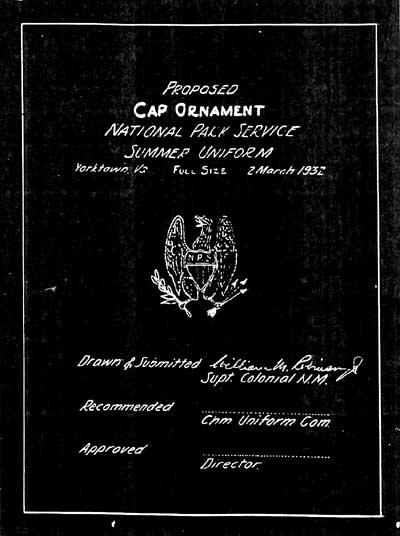 PROPOSED
CAP ORNAMENT
NATIONAL PARK SERVICE
SUMMER UNIFORM
Yorktown, Va. FULL SIZE 2 March 1932
N.P.S.
Drawn & Submitted William M. Robinson Jr
Supt. Colonial N.M.
Recommended
Chm Uniform Com.
Approved
Director.